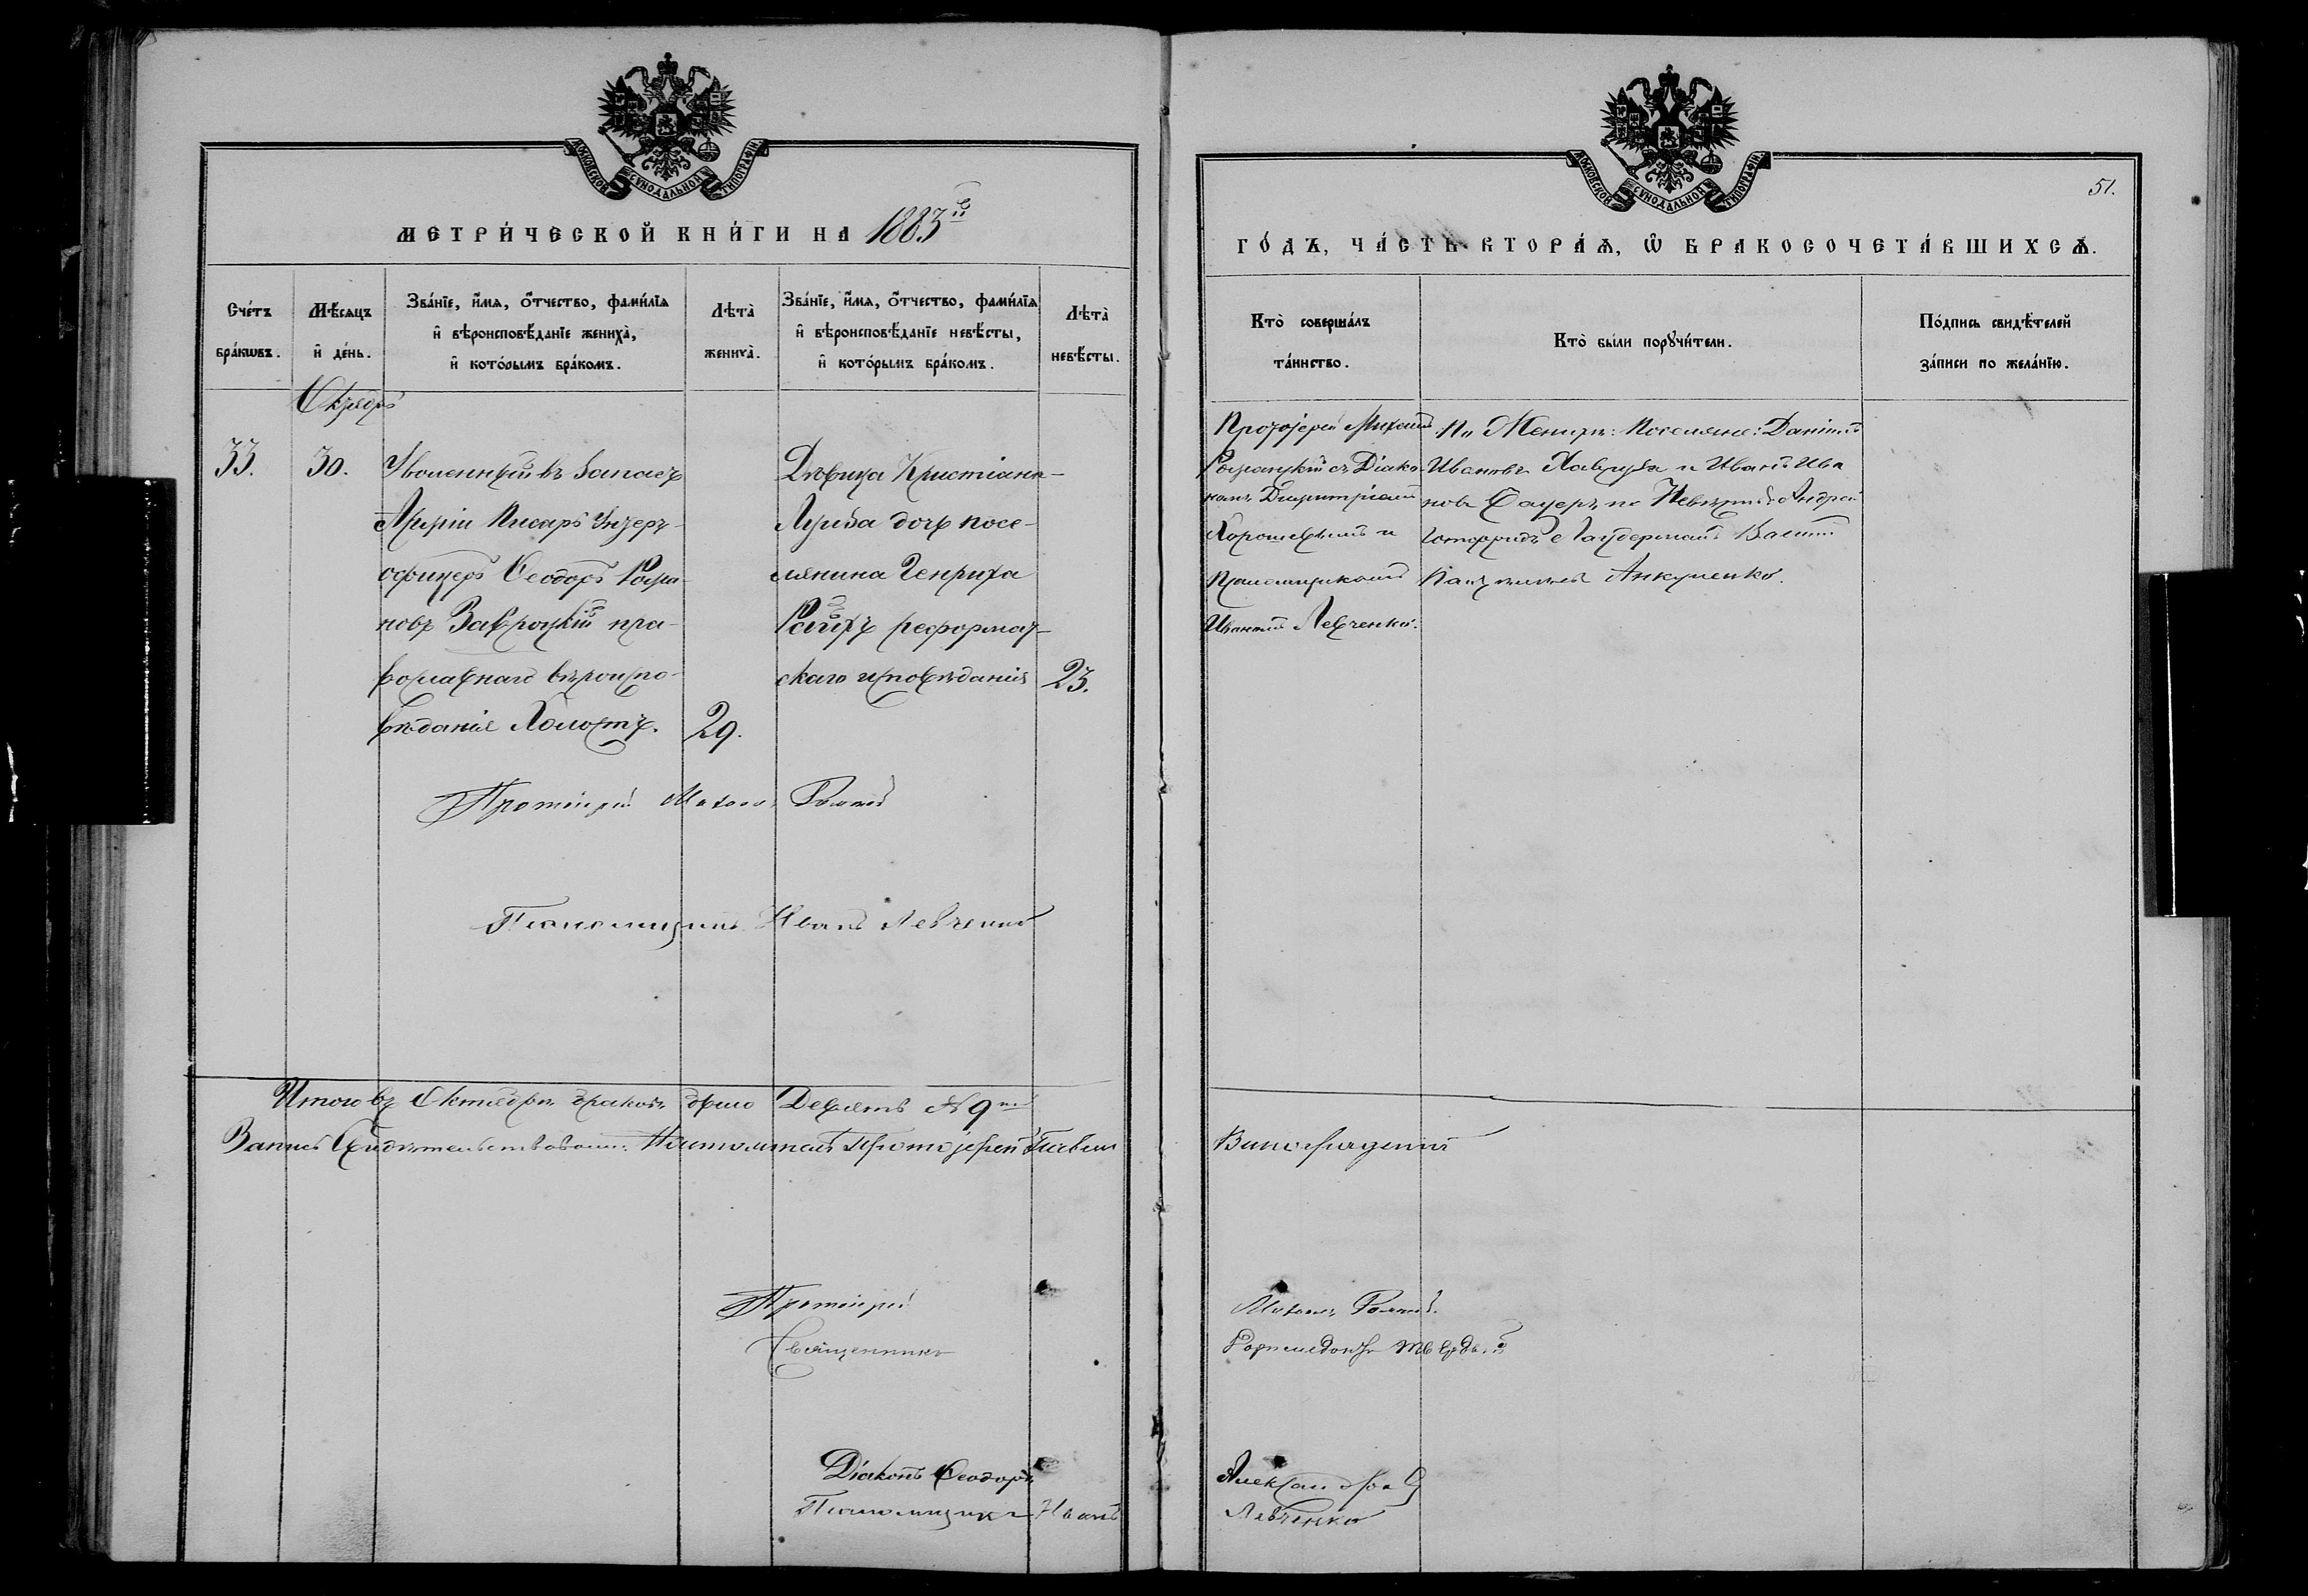 МОСКОВСКОЙ СѴНОДАЛЬНОЙ ТИПОГРАФІИ
МЕТРИ́ЧЕСКОЙ КНИ́ГИ НА 1883й
Сче́тъ бра́кѡвъ.
Мѣ́сяцъ и҆ де́нь.
Зва́нїе, и҆́мя, ѻ҆́тчество, фами́лїя
и҆ вѣроисповѣ́данїе жениха̀,
и҆ кото́рымъ бра́комъ.
Лѣта̀ жениха̀.
Зва́нїе, и҆́мя, ѻ҆́тчество, фами́лїя
и҆ вѣроисповѣ́данїе невѣ́сты,
и҆ кото́рымъ бра́комъ.
Лѣта̀ невѣ́сты.
33.
30.
Уволенный въ запасъ
Арміи Писарь Унтеръ-
офицеръ Ѳеодоръ Рома-
новъ Завроцкій пра-
вославнаго вѣроиспо-
вѣданія Холостъ.
29.
Дѣвица Христіана-
Луиза дочь посе-
лянина Генриха
реформат-
скаго исповѣданія
23.
Протоіерей Михаилъ
Псаломщикъ Иванъ Левченко
Итого въ Октябрѣ браковъ было Девять № 9
Протоіерей
Священникъ
Діаконъ Ѳеодоръ
Псаломщикъ Иванъ
МОСКОВСКОЙ СѴНОДАЛЬНОЙ ТИПОГРАФІИ
51.
ГО́ДЪ, ЧА́СТЬ ВТОРА́Ѧ, Ѽ БРАКОСОЧЕТА́ВШИХСѦ.
Кто̀ соверша́лъ
та́инство.
Кто̀ бы́ли порꙋчи́тели.
По́дпись свидѣ́телей
за́писи по жела́нїю.
Протоіерей Михаилъ
съ Діако-
номъ Димитріемъ
Хорошевымъ и
Псаломщикомъ
Иваномъ Левченко.
По Женихѣ: Поселяне: Даніилъ
Ивановъ и Иванъ Ива
новъ Сауеръ, по Невѣстѣ: Андрей
Готфридъ
Анкуменко.
Михаилъ
Александровъ
Левченко